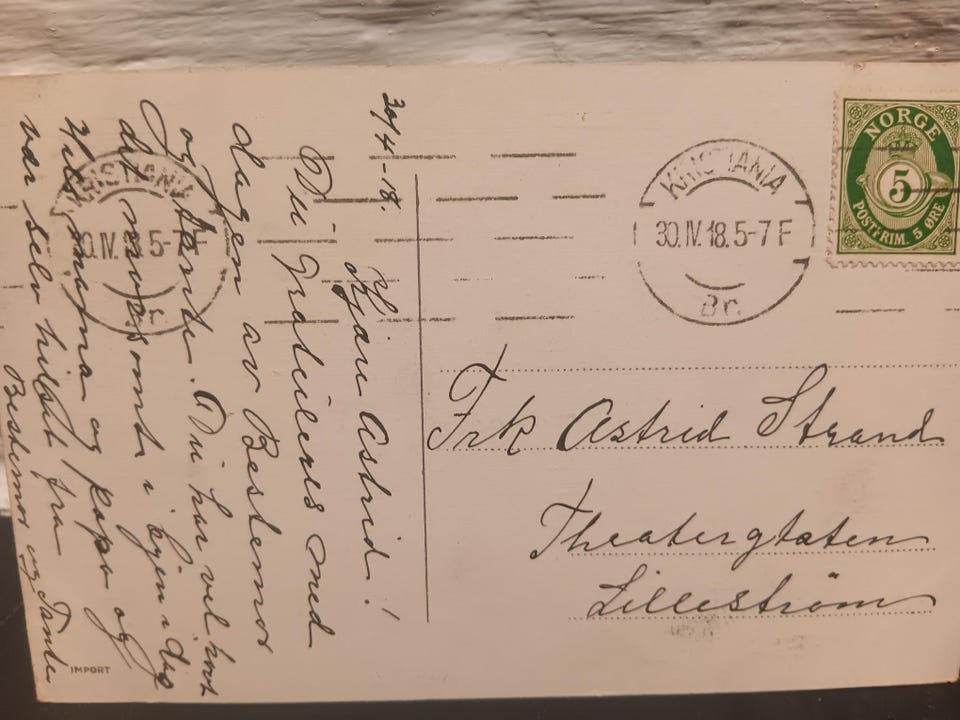 30/4-18.
Kjære Astrid!
Du Gratuleres med
dagen av Bestemor
og Tante. Du har vel hort
det morsomt i byen i dag
Hils mama og papa og
vær selv hilset fra
Bestemor og Tante
IMPORT
KRISTIANIA
30.IV.18.5-7F
Br.
KRISTIANIA
30.IV.18.5-7F
Br.
NORGE
5
POSTFRIM. 5 ØRE
Frk Astrid Strand
Theatergtaten
Lillestrøm